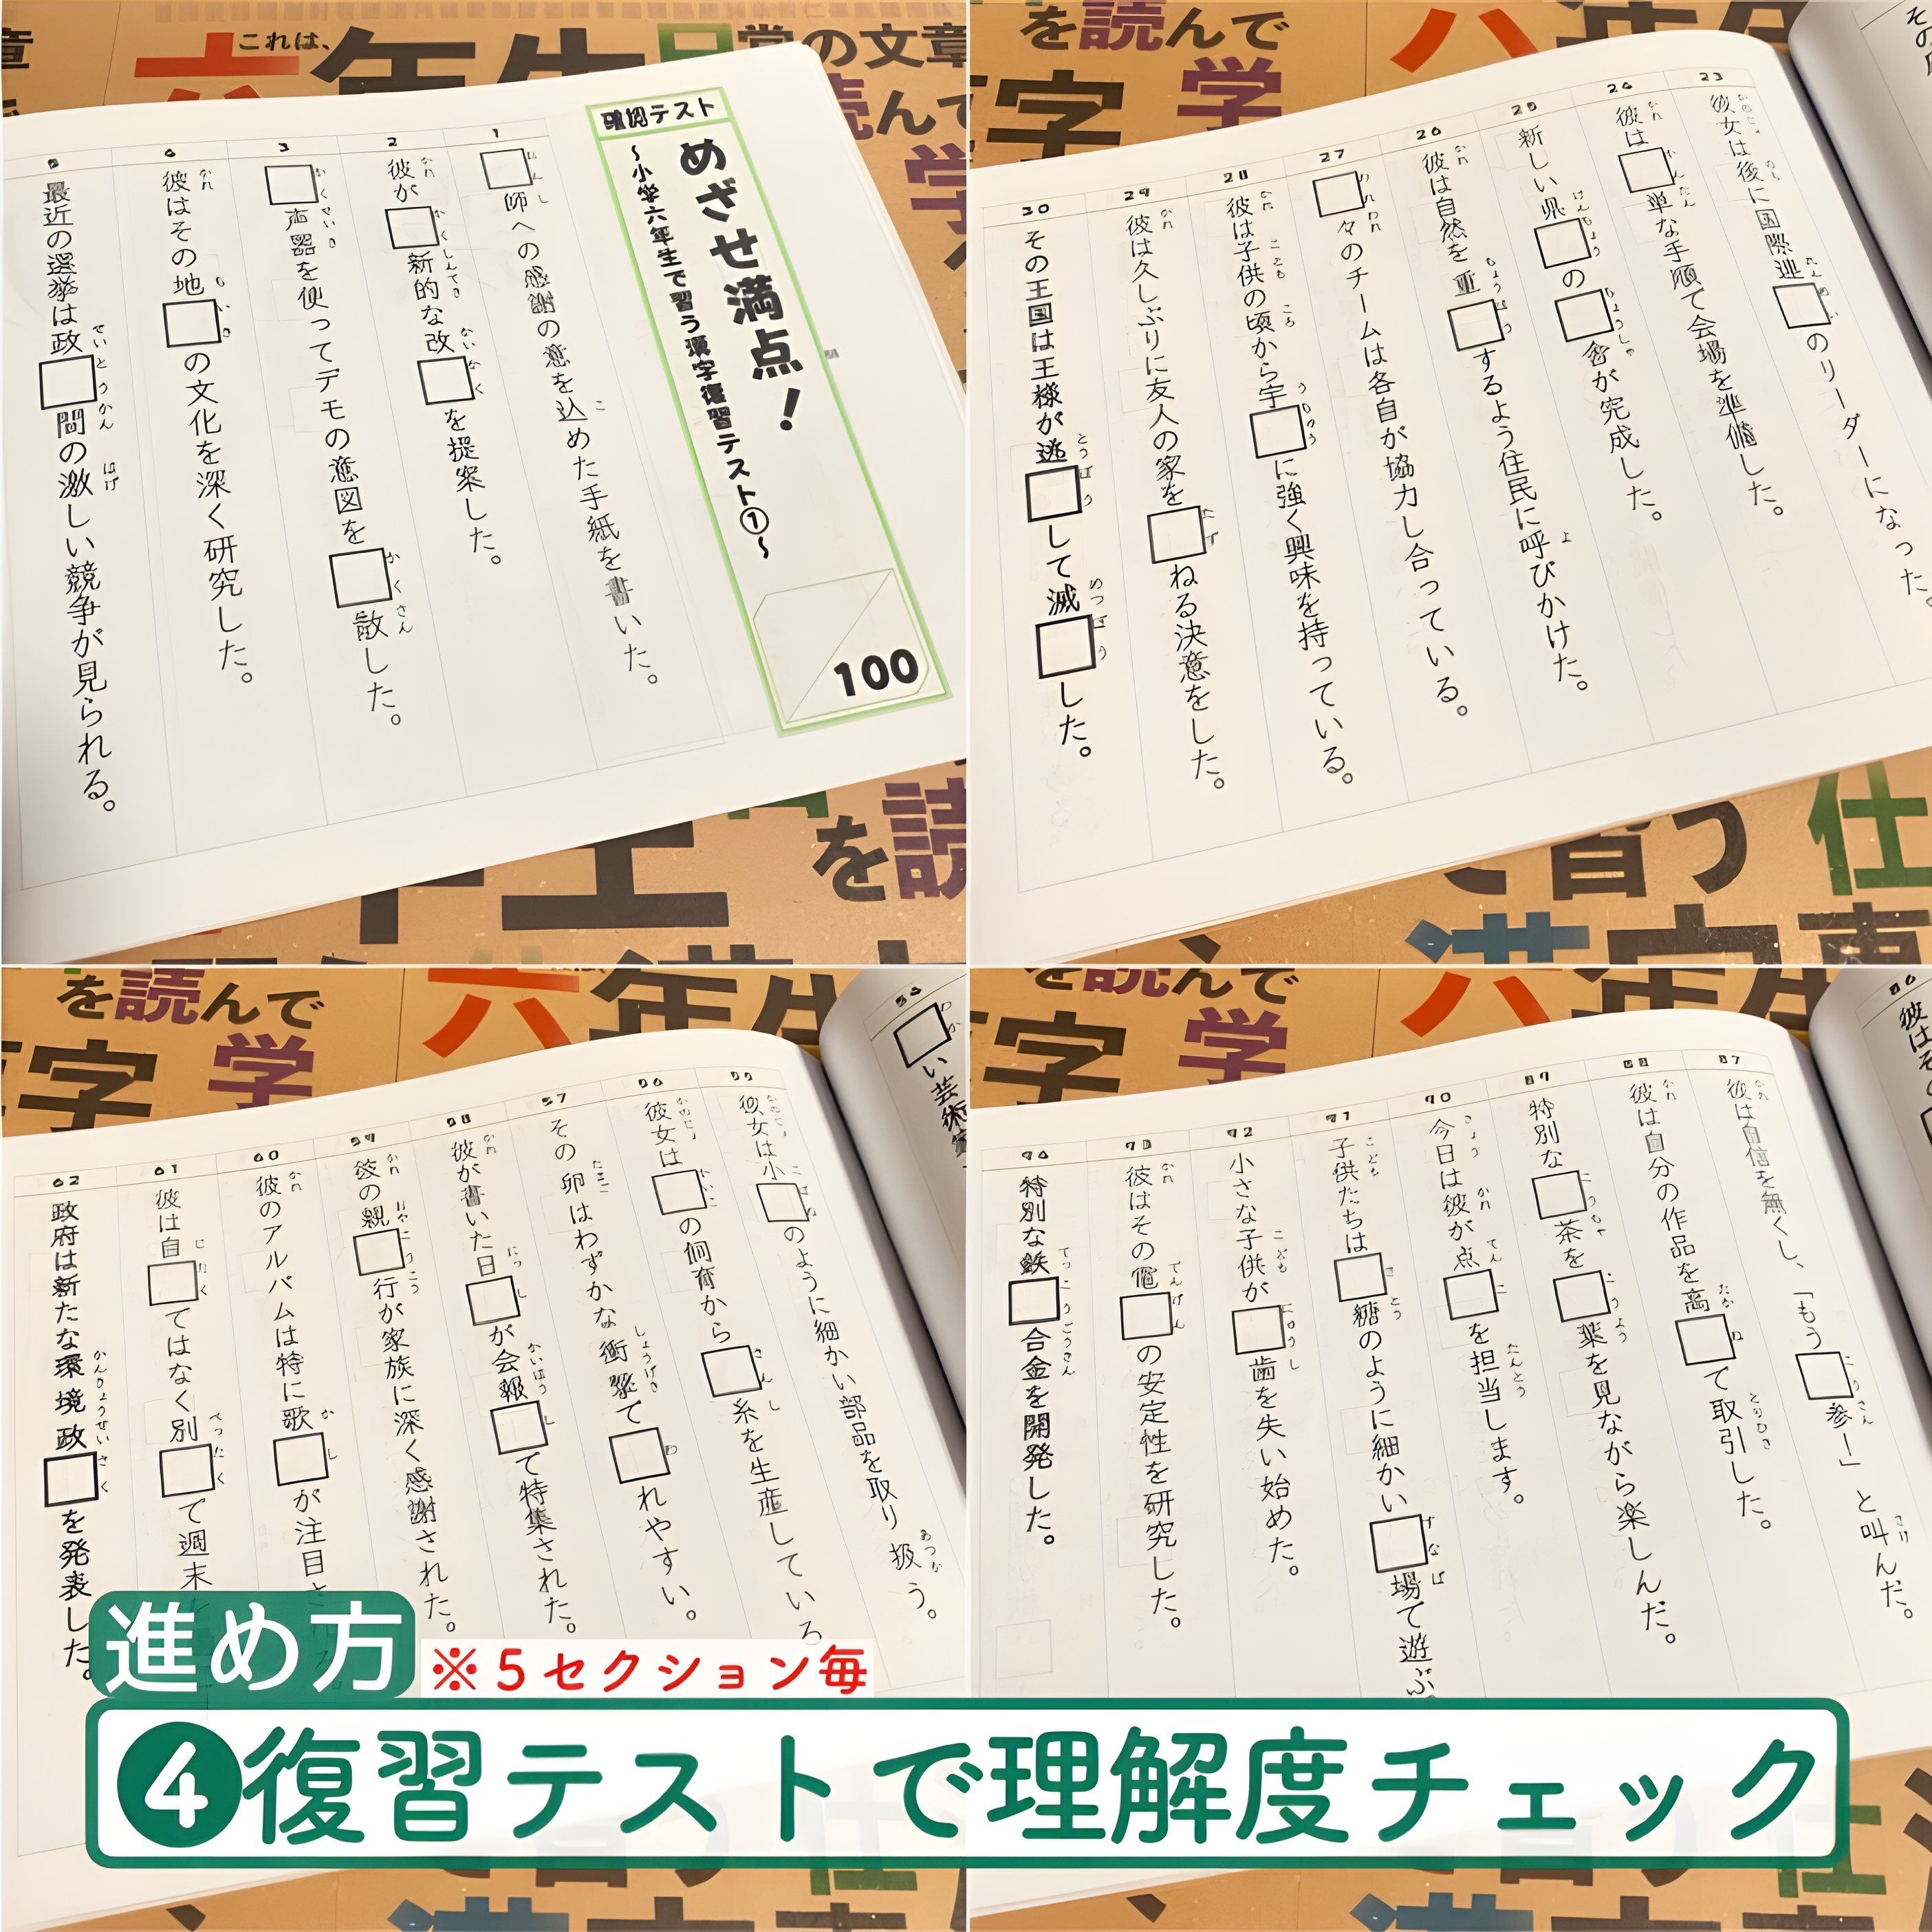 確認テスト
めざせ満点！
～小学六年生で習う漢字復習テスト①～
100
1
□師への感謝の意を込めた手紙を書いた。
2
彼が□新的な改□を提案した。
3
□声器を使ってデモの意図を□散した。
彼はその地□の文化を深く研究した。
最近の選挙は政□間の激しい競争が見られる。
これは、
六年生
日常の文章
を読んで
学
23
彼女は後に国際連□のリーダーになった。
24
彼は□単な手順で会場を準備した。
25
新しい県□の□舎が完成した。
26
彼は自然を重□するよう住民に呼びかけた。
27
□々のチームは各自が協力し合っている。
28
彼は子供の頃から宇□に強く興味を持っている。
29
彼は久しぶりに友人の家を□ねる決意をした。
30
その王国は王様が逃□して滅□した。
を読んで
学
六年生
□い芸術家
55
彼女は小□のように細かい部品を取り扱う。
56
彼女は□の飼育から□糸を生産している
57
その卵はわずかな衝撃で□れやすい。
58
彼が書いた日□が会報□で特集された。
59
彼の親□行が家族に深く感謝された。
60
彼のアルバムは特に歌□が注目
61
彼は自□ではなく別□で週末を
62
政府は新たな環境政□を発表した。
を読んで
字
学
六年生
87
彼は自信を無くし、「もう□参！」と叫んだ。
88
彼は自分の作品を高□で取引した。
89
特別な□茶を□葉を見ながら楽しんだ。
90
今日は彼が点□を担当します。
91
子供たちは□糖のように細かい□場で遊ぶ。
92
小さな子供が□歯を失い始めた。
93
彼はその電□の安定性を研究した。
94
特別な鉄□合金を開発した。
進め方
※５セクション毎
❹復習テストで理解度チェック